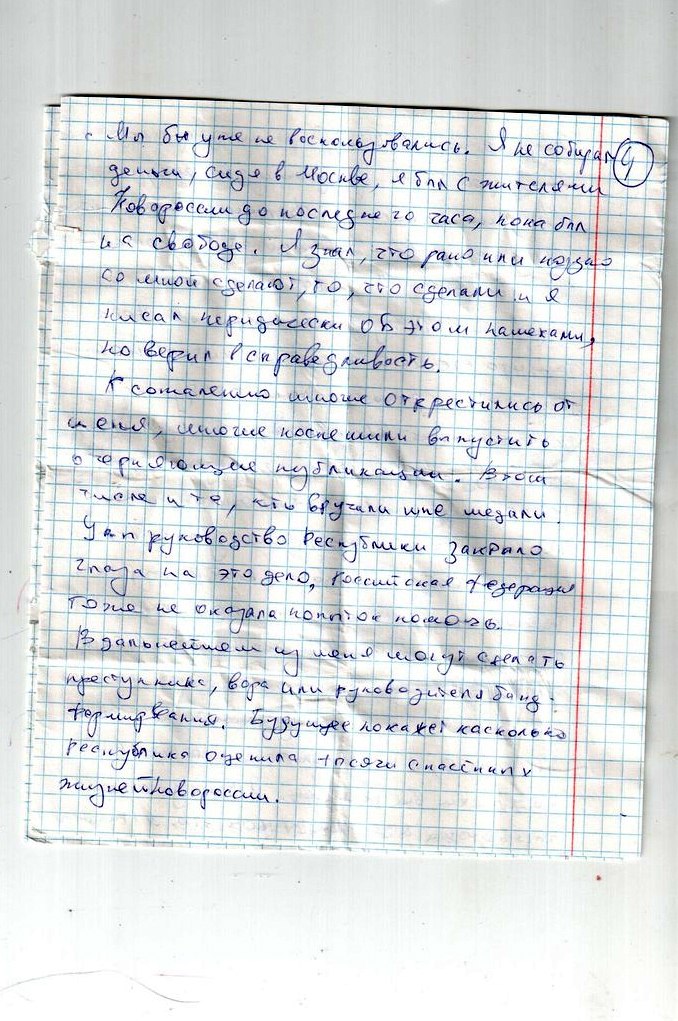 Мы бы уже не воспользовались. Я не собирал
4
деньги, сидя в Москве, я был с жителями
Новороссии до последнего часа, пока был
на свободе. Я знал, что рано или поздно
со мной сделают, то, что сделали и я
писал периодически об этом намеками,
но верил в справедливость.
К сожалению многие открестились от
меня, многие поспешили выпустить
очерняющие публикации. В том
числе и те, кто вручали мне медали.
руководство Республики закрыло
глаза на это дело, Российская Федерация
тоже не оказала попыток помочь.
В дальнейшем из меня могут сделать
преступника, вора или руководителя банд.
формирования. Будущее покажет насколько
республика оценила тысячи спасённых
жизней Новороссии.